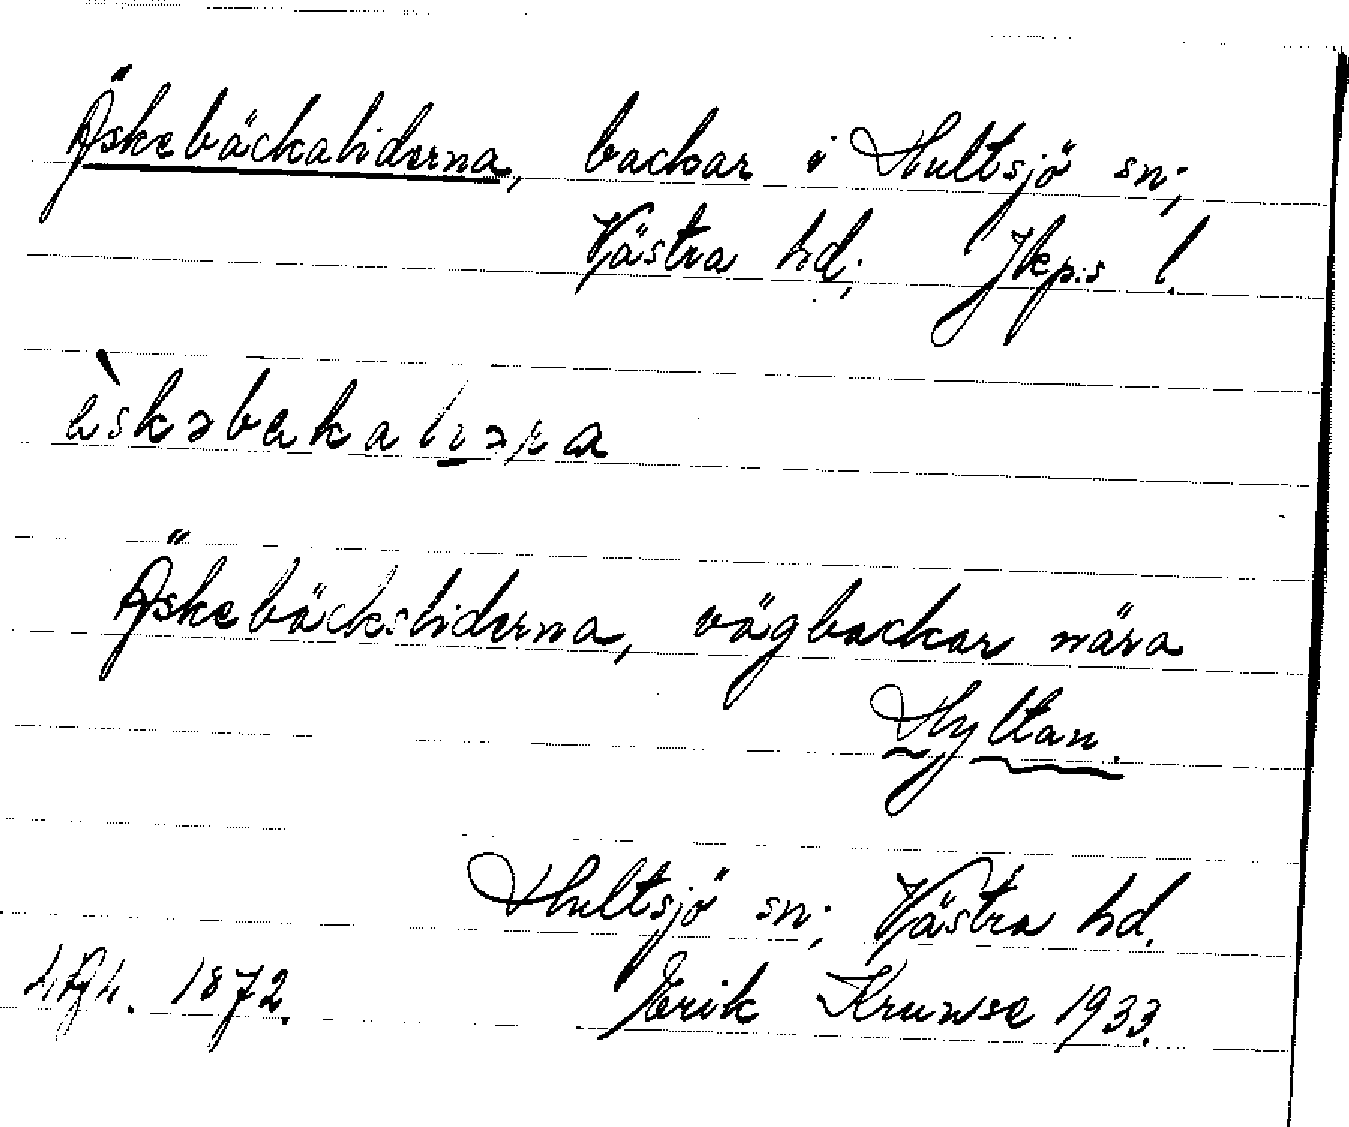 Äskebäckaliderna, backar i Hultsjö sn;
Västra hd; Jkp:s l.
Äskebäcksliderna, vägbackar nära
Hyltan.
Hultsjö sn; Västra hd.
1872. Erik Kruuse 1933.